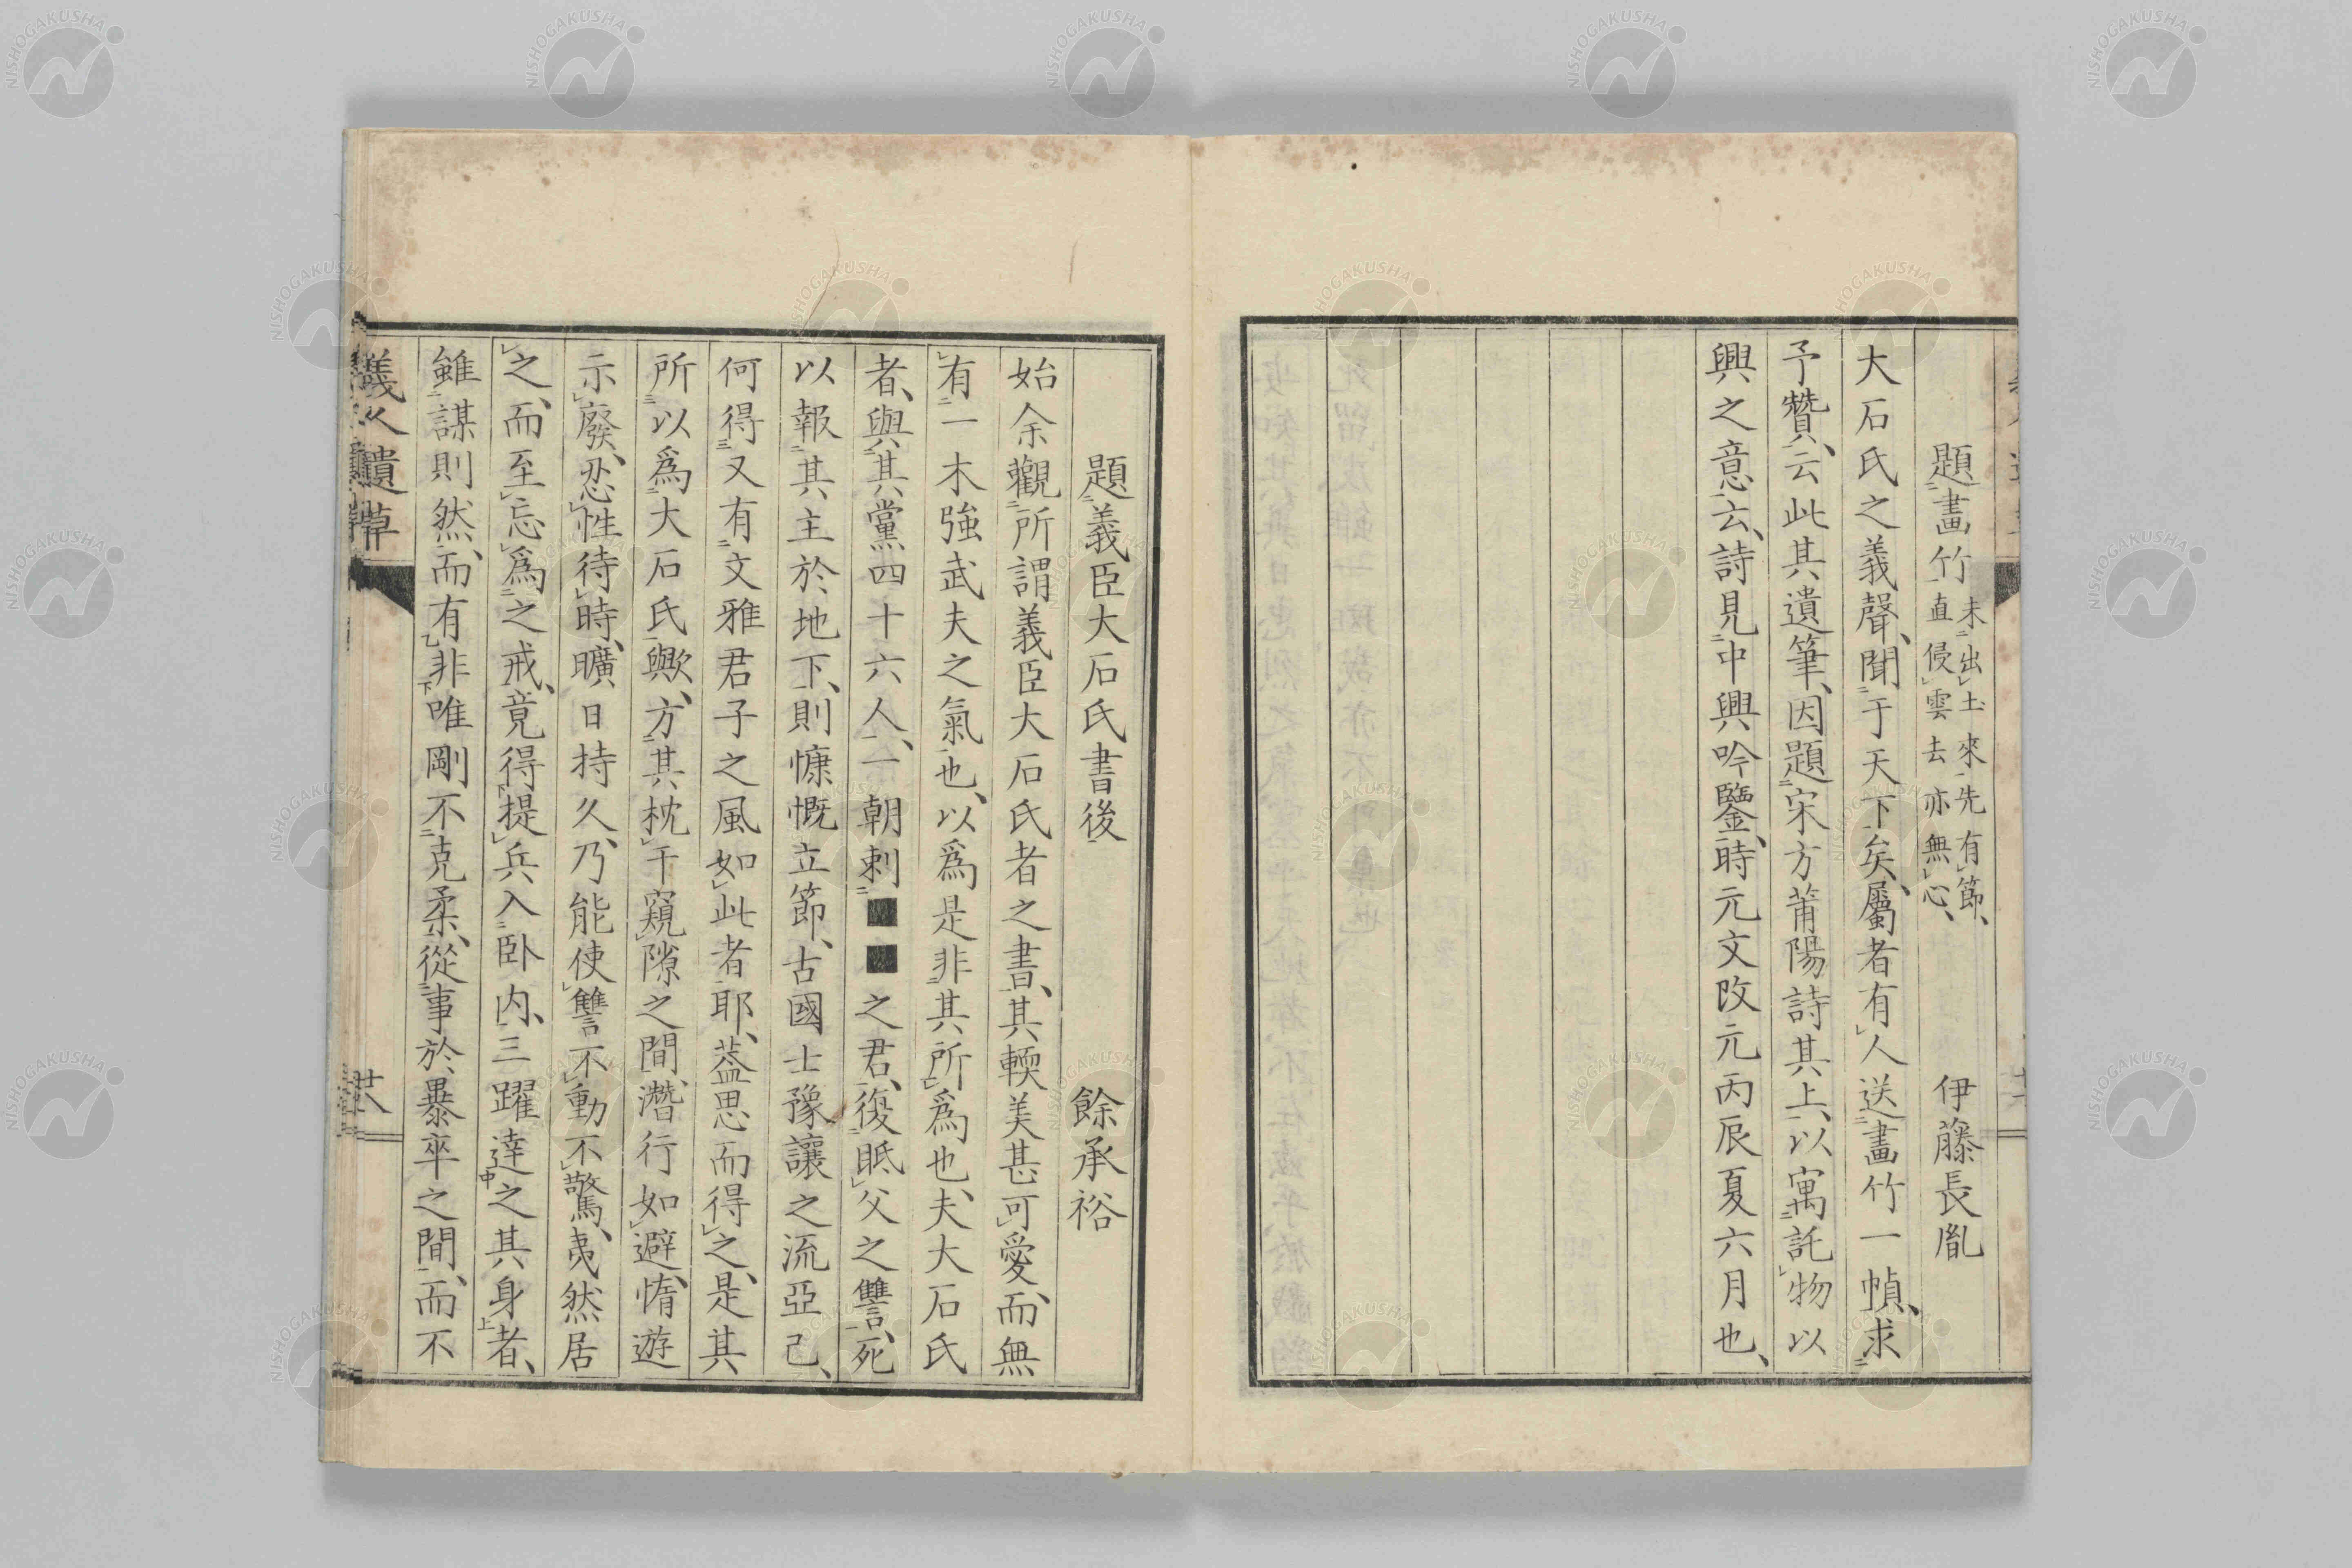 題畫竹 未出土來先有節、直侵雲去亦無心、 伊藤長胤
大石氏之義聲、聞于天下矣、屬者有人送畫竹一幀、求
予贊、云此其遺筆、因題宋方莆陽詩其上、以寓託物以
興之意云、詩見中興吟鑒、時元文改元丙辰夏六月也、
題義臣大石氏書後 餘承裕
始余觀所謂義臣大石氏者之書、其輭美甚可愛、而無
有一木強武夫之氣也、以爲是非其所爲也、夫大石氏
者、與其黨四十六人、一朝刺■■之君、復眡父之讐、死
以報其主於地下、則慷慨立節、古國士豫讓之流亞已、
何得又有文雅君子之風如此者耶、蓋思而得之、是其
所以爲大石氏歟、方其枕干窺隙之間、潛行如避、惰遊
示廢、忍性待時、曠日持久、乃能使讐不動不驚、夷然居
之、而至忘爲之戒、竟得提兵入臥内、三躍達之其身者、
雖謀則然、而有非唯剛不克柔、從事於暴卒之間、而不
義人遺草
廿八
NISHOGAKUSHA